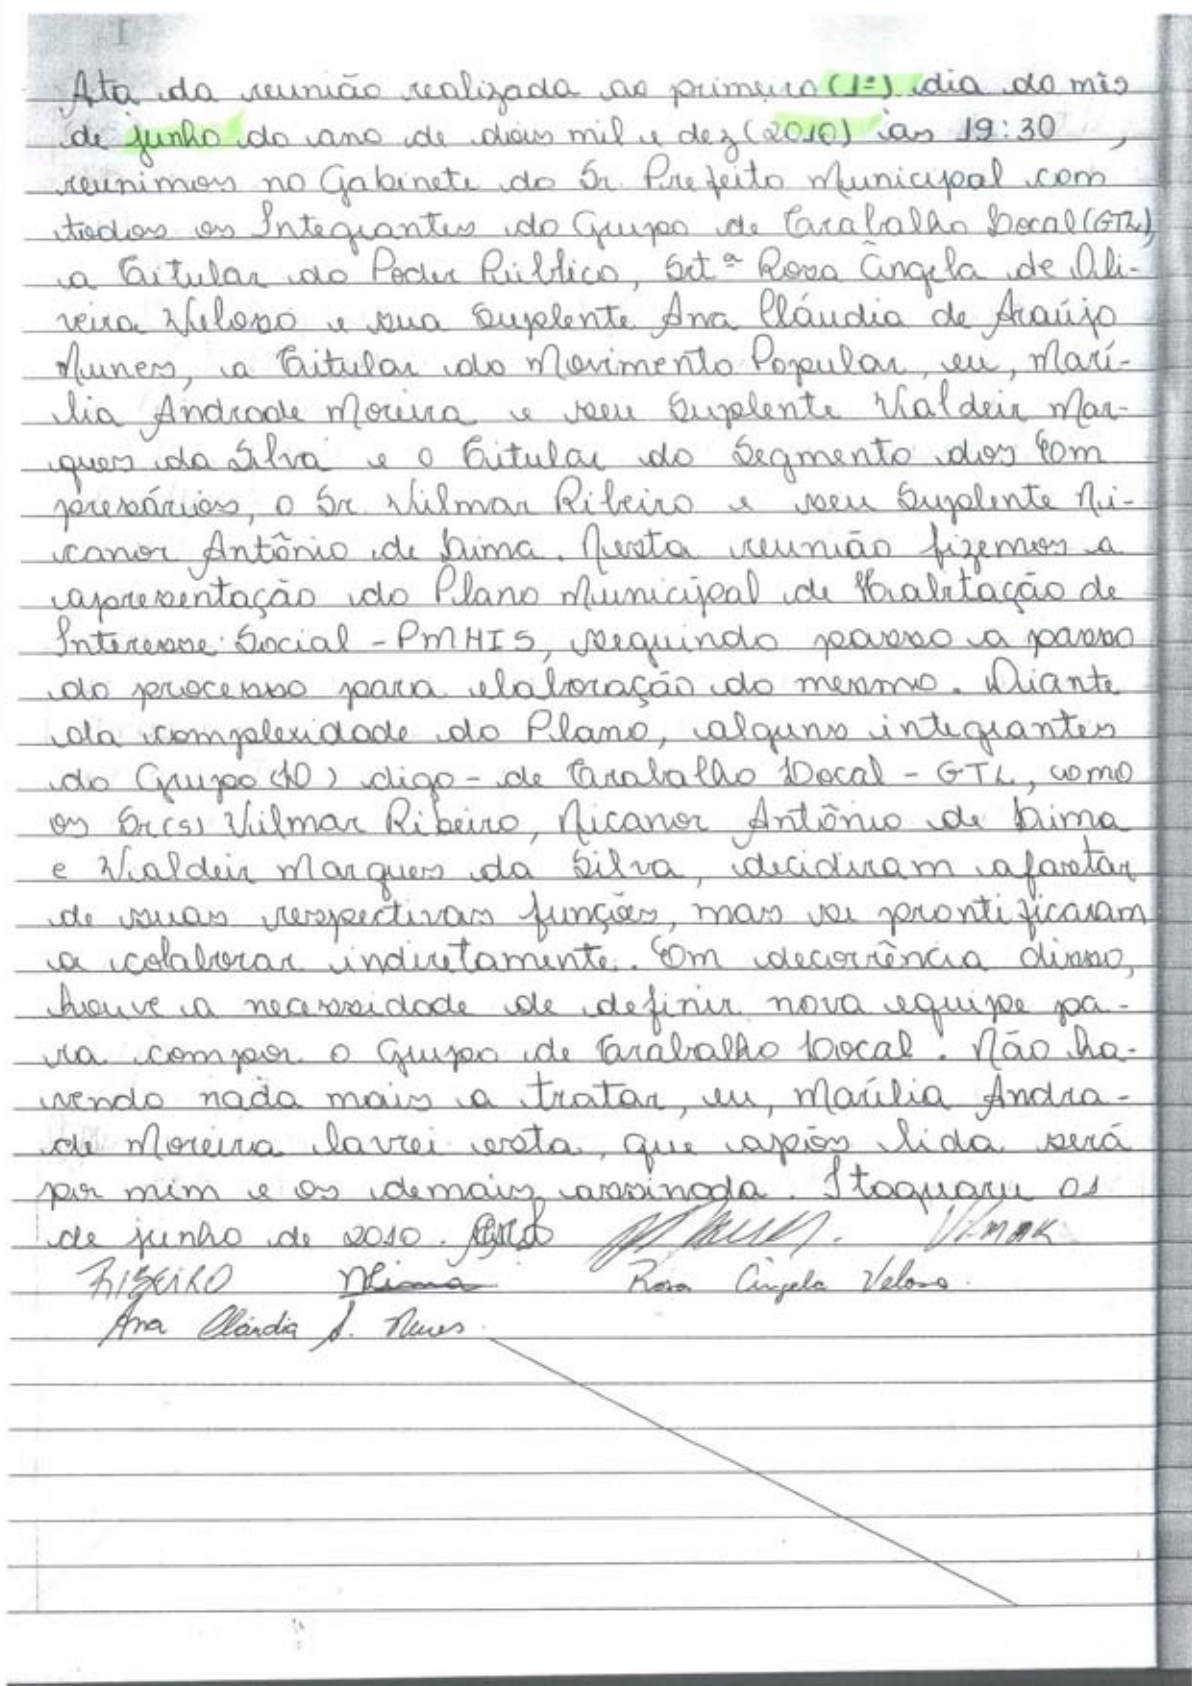 Ata da reunião realizada ao primeiro (1º) dia do mês
de junho do ano de dois mil e dez (2010) às 19:30 ,
reunimos no Gabinete do Sr. Prefeito Municipal com
todos os Integrantes do Grupo de Trabalho Local (GTL)
a Titular do Poder Público, Srtª Rosa Ângela de Oli-
veira Veloso e sua Suplente Ana Cláudia de Araújo
Nunes, a Titular do Movimento Popular, eu, Marí-
lia Andrade Moreira e seu Suplente Valdeir Mar-
ques da Silva e o Titular do Segmento dos Em
presários, o Sr. Vilmar Ribeiro e seu Suplente Ni-
canor Antônio de Lima. Nesta reunião fizemos a
apresentação do Plano Municipal de Habitação de
Interesse Social - PMHIS, seguindo passo a passo
do processo para elaboração do mesmo. Diante
da complexidade do Plano, alguns integrantes
do Grupo (LO) digo - de Trabalho Local - GTL, como
os Sr(s) Vilmar Ribeiro, Nicanor Antônio de Lima
e Valdeir Marques da Silva, decidiram afastar
de suas respectivas funções, mas se prontificaram
a colaborar indiretamente. Em decorrência disso,
houve a necessidade de definir nova equipe pa-
ra compor o Grupo de Trabalho Local. Não ha-
vendo nada mais a tratar, eu, Marília Andra-
de Moreira lavrei esta, que após lida será
por mim e os demais assinada. Itaquaru 01
de junho de 2010. Vilmar
RIBEIRO NLima Rosa Ângela Veloso.
Ana Cláudia A. Nunes.